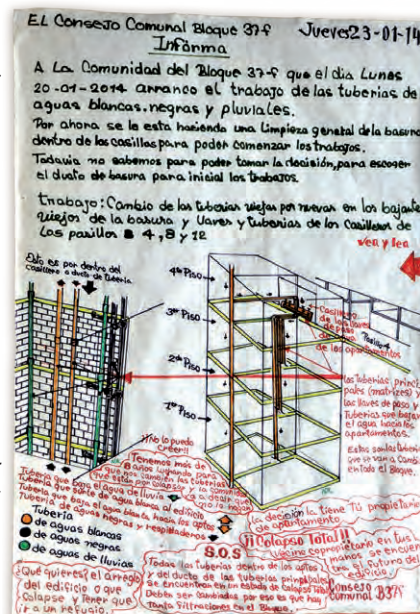 EL Consejo Comunal Bloque 37-f Jueves 23-01-14
Informa
A La Comunidad del Bloque 37-f que el dia Lunes
20-01-2014 arranco el trabajo de las tuberias de
aguas blancas.negras y pluviales.
Por ahora se le esta haciendo una Limpieza general de la basura
dentro de las casillas para poder comenzar los trabajos.
Todavia no sabemos para poder tomar la decisión, para escoger
el ducto de basura para inicial los trabajos.
trabajo: Cambio de las tuberias viejas por nuevas en los bajantes
viejos de la basura y llaves y tuberias de los Casilleros de
Los pasillos 4,8 y 12
ven y lea
Esto es por dentro del
casillero o ducto de tuberia
4to Piso
3er Piso
2do Piso
1er Piso
Pasillo 4
Casillero
de las llaves
de paso
de los apartamentos
las tuberias princi-
pales (matrizes) y
las llaves de paso y
Tuberias que bajan
el agua hacia los
apartamentos.
Estas son las tuberias
que se van a Cambiar
en todo el Bloque.
¡No lo puedo
creer!!
Tenemos más de
8 años luchando para
que nos cambien las tuberias
que están por colapsar y la comunidad
Tuberia que baja el agua de lluvia
Tuberia que surte de agua blanca al edificio
Tuberia que baja el agua blanca, hacia los aptos
Tuberia de aguas negras y respiraderos
Tuberia
de aguas blancas
de aguas negras
de aguas de lluvias
la decisión la tiene Tú propietario
de apartamento
¡¡Colapso Total!!
vecino copropietario en tus
manos se encuen-
tra el futuro del
edificio
S.O.S
Todas las tuberias dentro de los aptos
y del ducto de las tuberias principales
Se encuentran en un estado de Colapso Total
Deben ser Cambiadas por eso es que hay
Tanta Filtraciones en el Bloque
¿Qué quieres? el arreglo
del edificio o que
Colapse y Tener que
ir a un refugio.
Consejo
Comunal B37f